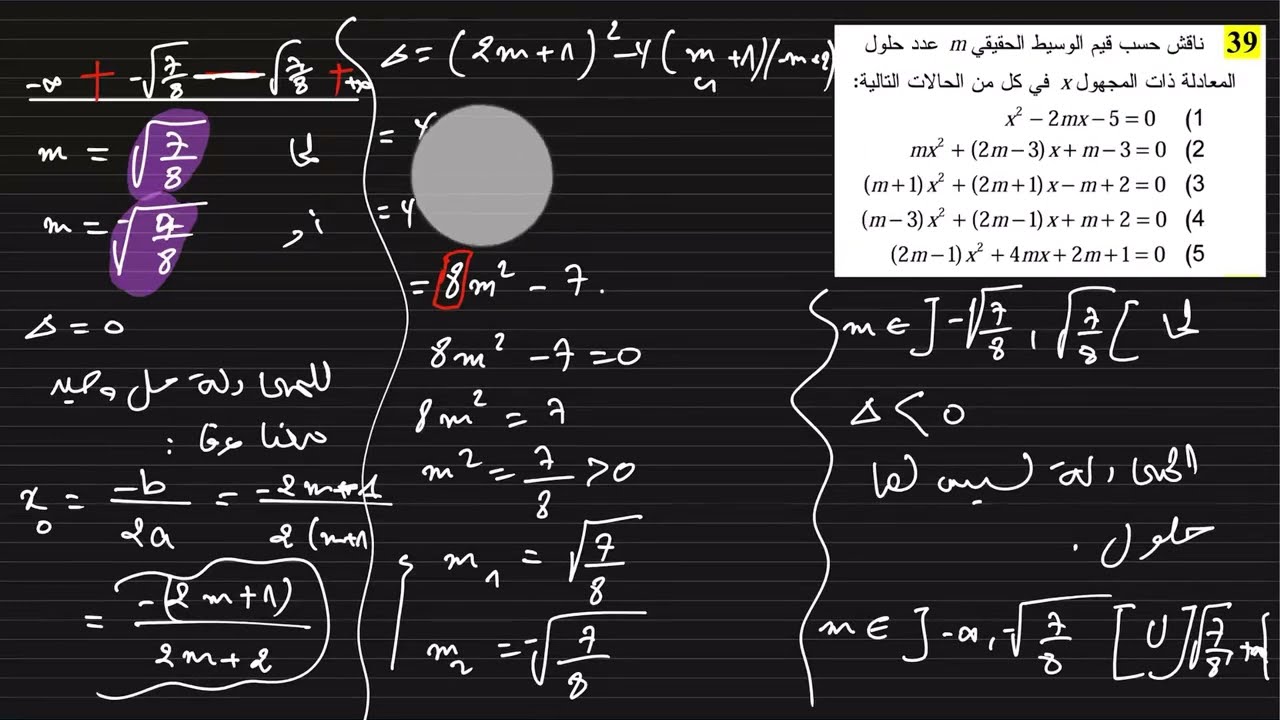 39 ناقش حسب قيم الوسيط الحقيقي m عدد حلول
المعادلة ذات المجهول x في كل من الحالات التالية:
x² − 2mx − 5 = 0 (1
mx² + (2m − 3)x + m − 3 = 0 (2
(m + 1)x² + (2m + 1)x − m + 2 = 0 (3
(m − 3)x² + (2m − 1)x + m + 2 = 0 (4
(2m − 1)x² + 4mx + 2m + 1 = 0 (5
-∞ + -√7/8 — √7/8 + +∞
m = √7/8 لما
m =
Δ = 0
للمعادلة حل وحيد
x₀ = -b/2a = -2m+1/2(m+1
= -(2m+1)/2m+2
Δ = (2m+1)² -4(m+1)(
= 4
= 4
= 8m² - 7.
8m² - 7 = 0
8m² = 7
m² = 7/8 > 0
m₁ = √7/8
m₂ = -√7/8
m ∈ ]-√7/8, √7/8[ لما
Δ < 0
المعادلة ليس لها
حلول .
m ∈ ]-∞, -√7/8[ U ]√7/8, +∞[